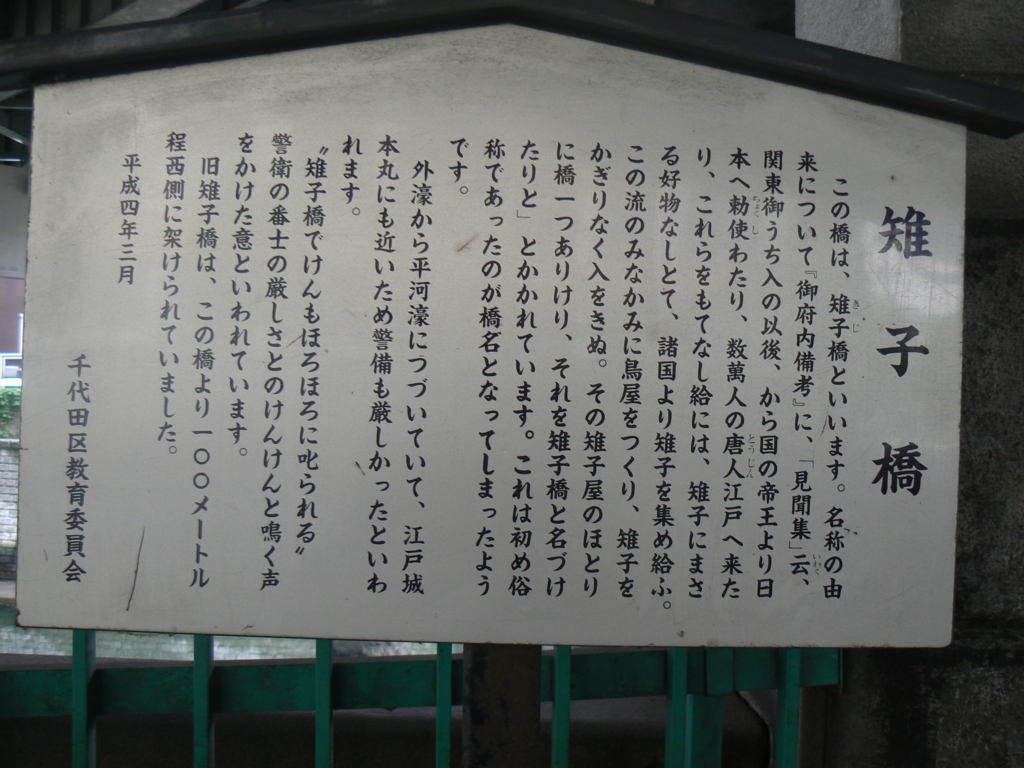 雉子橋
この橋は、雉子橋といいます。名称の由
来について『御府内備考』に、「見聞集」云、
関東御うち入の以後、から国の帝王より日
本へ勅使わたり、数萬人の唐人江戸へ来た
り、これらをもてなし給には、雉子にまさ
る好物なしとて、諸国より雉子を集め給ふ。
この流のみなかみに鳥屋をつくり、雉子を
かぎりなく入をきぬ。その雉子屋のほとり
に橋一つありけり、それを雉子橋と名づけ
たりと」とかかれています。これは初め俗
称であったのが橋名となってしまったよう
です。
外濠から平河濠につづいていて、江戸城
本丸にも近いため警備も厳しかったといわ
れます。
〝雉子橋でけんもほろほろに叱られる〟
警衛の番士の厳しさとのけんけんと鳴く声
をかけた意といわれています。
旧雉子橋は、この橋より一〇〇メートル
程西側に架けられていました。
平成四年三月
千代田区教育委員会